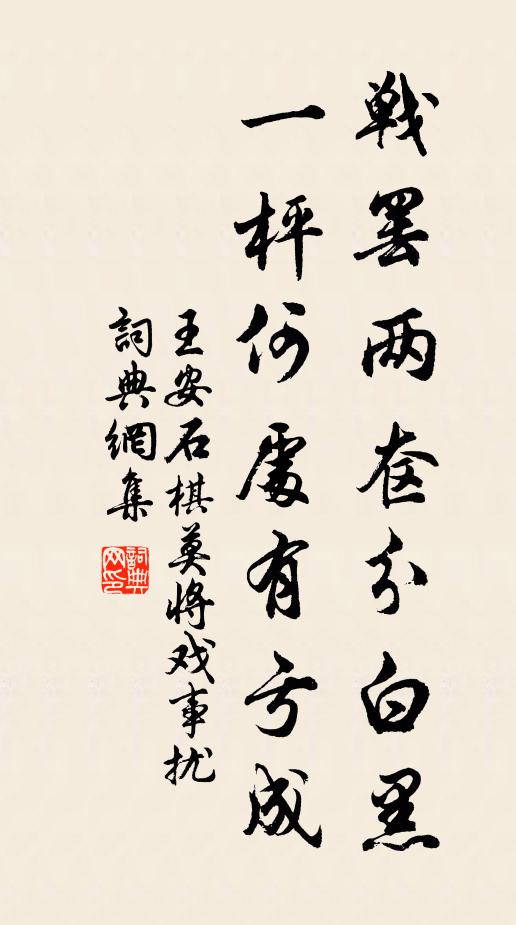 戰罢两奁分白黑
一枰何處有亏成
王安石棋莫將戏事扰
詞典網集
詞典网印